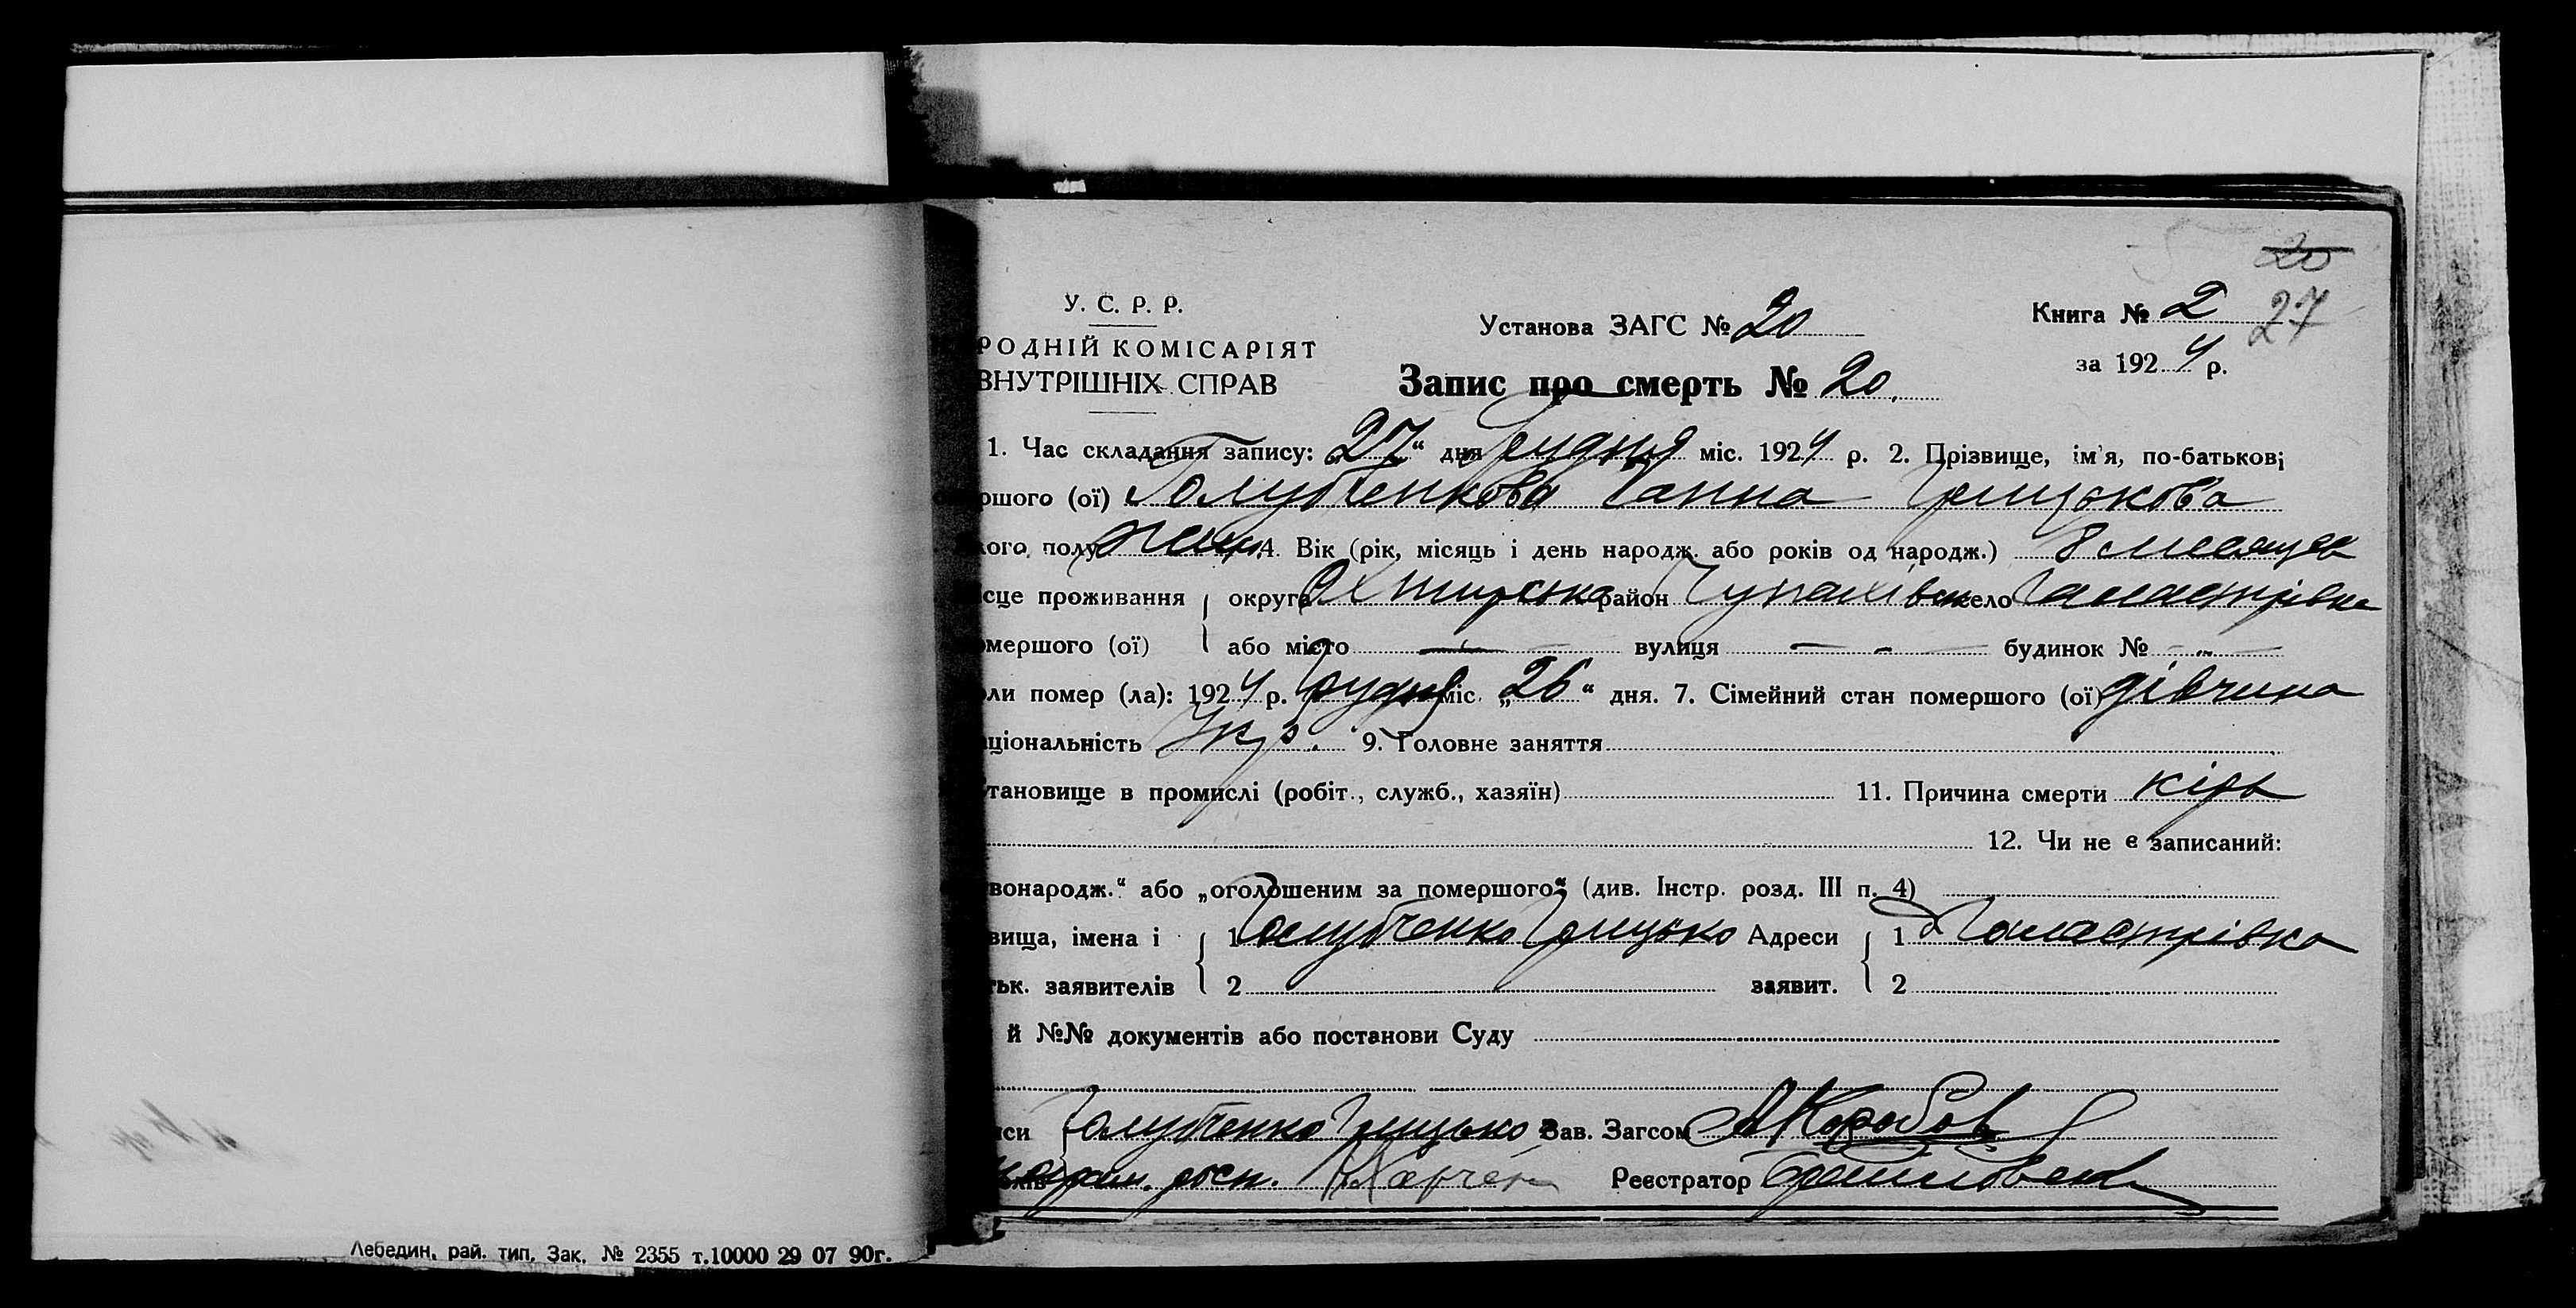 20
У. С. Р. Р.
РОДНІЙ КОМІСАРІЯТ
ВНУТРІШНІХ СПРАВ
Установа ЗАГС № 20
Книга № 2
27
за 1924 р.
Запис про смерть № 20.
1. Час складання запису: „27“ дня Грудня міс. 1924 р. 2. Прізвище, ім'я, по-батькові
ршого (ої) Голубченкова Ганна Грицькова
кого полу жін. 4. Вік (рік, місяць і день народж. або років од народж.) 8 месяцев
сце проживання округа Охтирська район Чупахівськ село Гамастрівка
омершого (ої) або місто — вулиця — - — будинок № - „ -
ли помер (ла): 1924 р. Грудня міс. „26“ дня. 7. Сімейний стан помершого (ої) дівчина
ціональність Укр. 9. Головне заняття
тановище в промислі (робіт., служб., хазяїн) 11. Причина смерти кірь
12. Чи не є записаний:
вонародж.“ або „оголошеним за помершого“ (див. Інстр. розд. III п. 4)
вища, імена і 1 Голубченко Грицько Адреси 1 Гамастрівка
тьк. заявителів 2 заявит. 2
й №№ документів або постанови Суду
си Голубченко Грицько Зав. Загсом АКоробов
Реєстратор
Лебедин. рай. тип. Зак. № 2355 т.10000 29 07 90г.